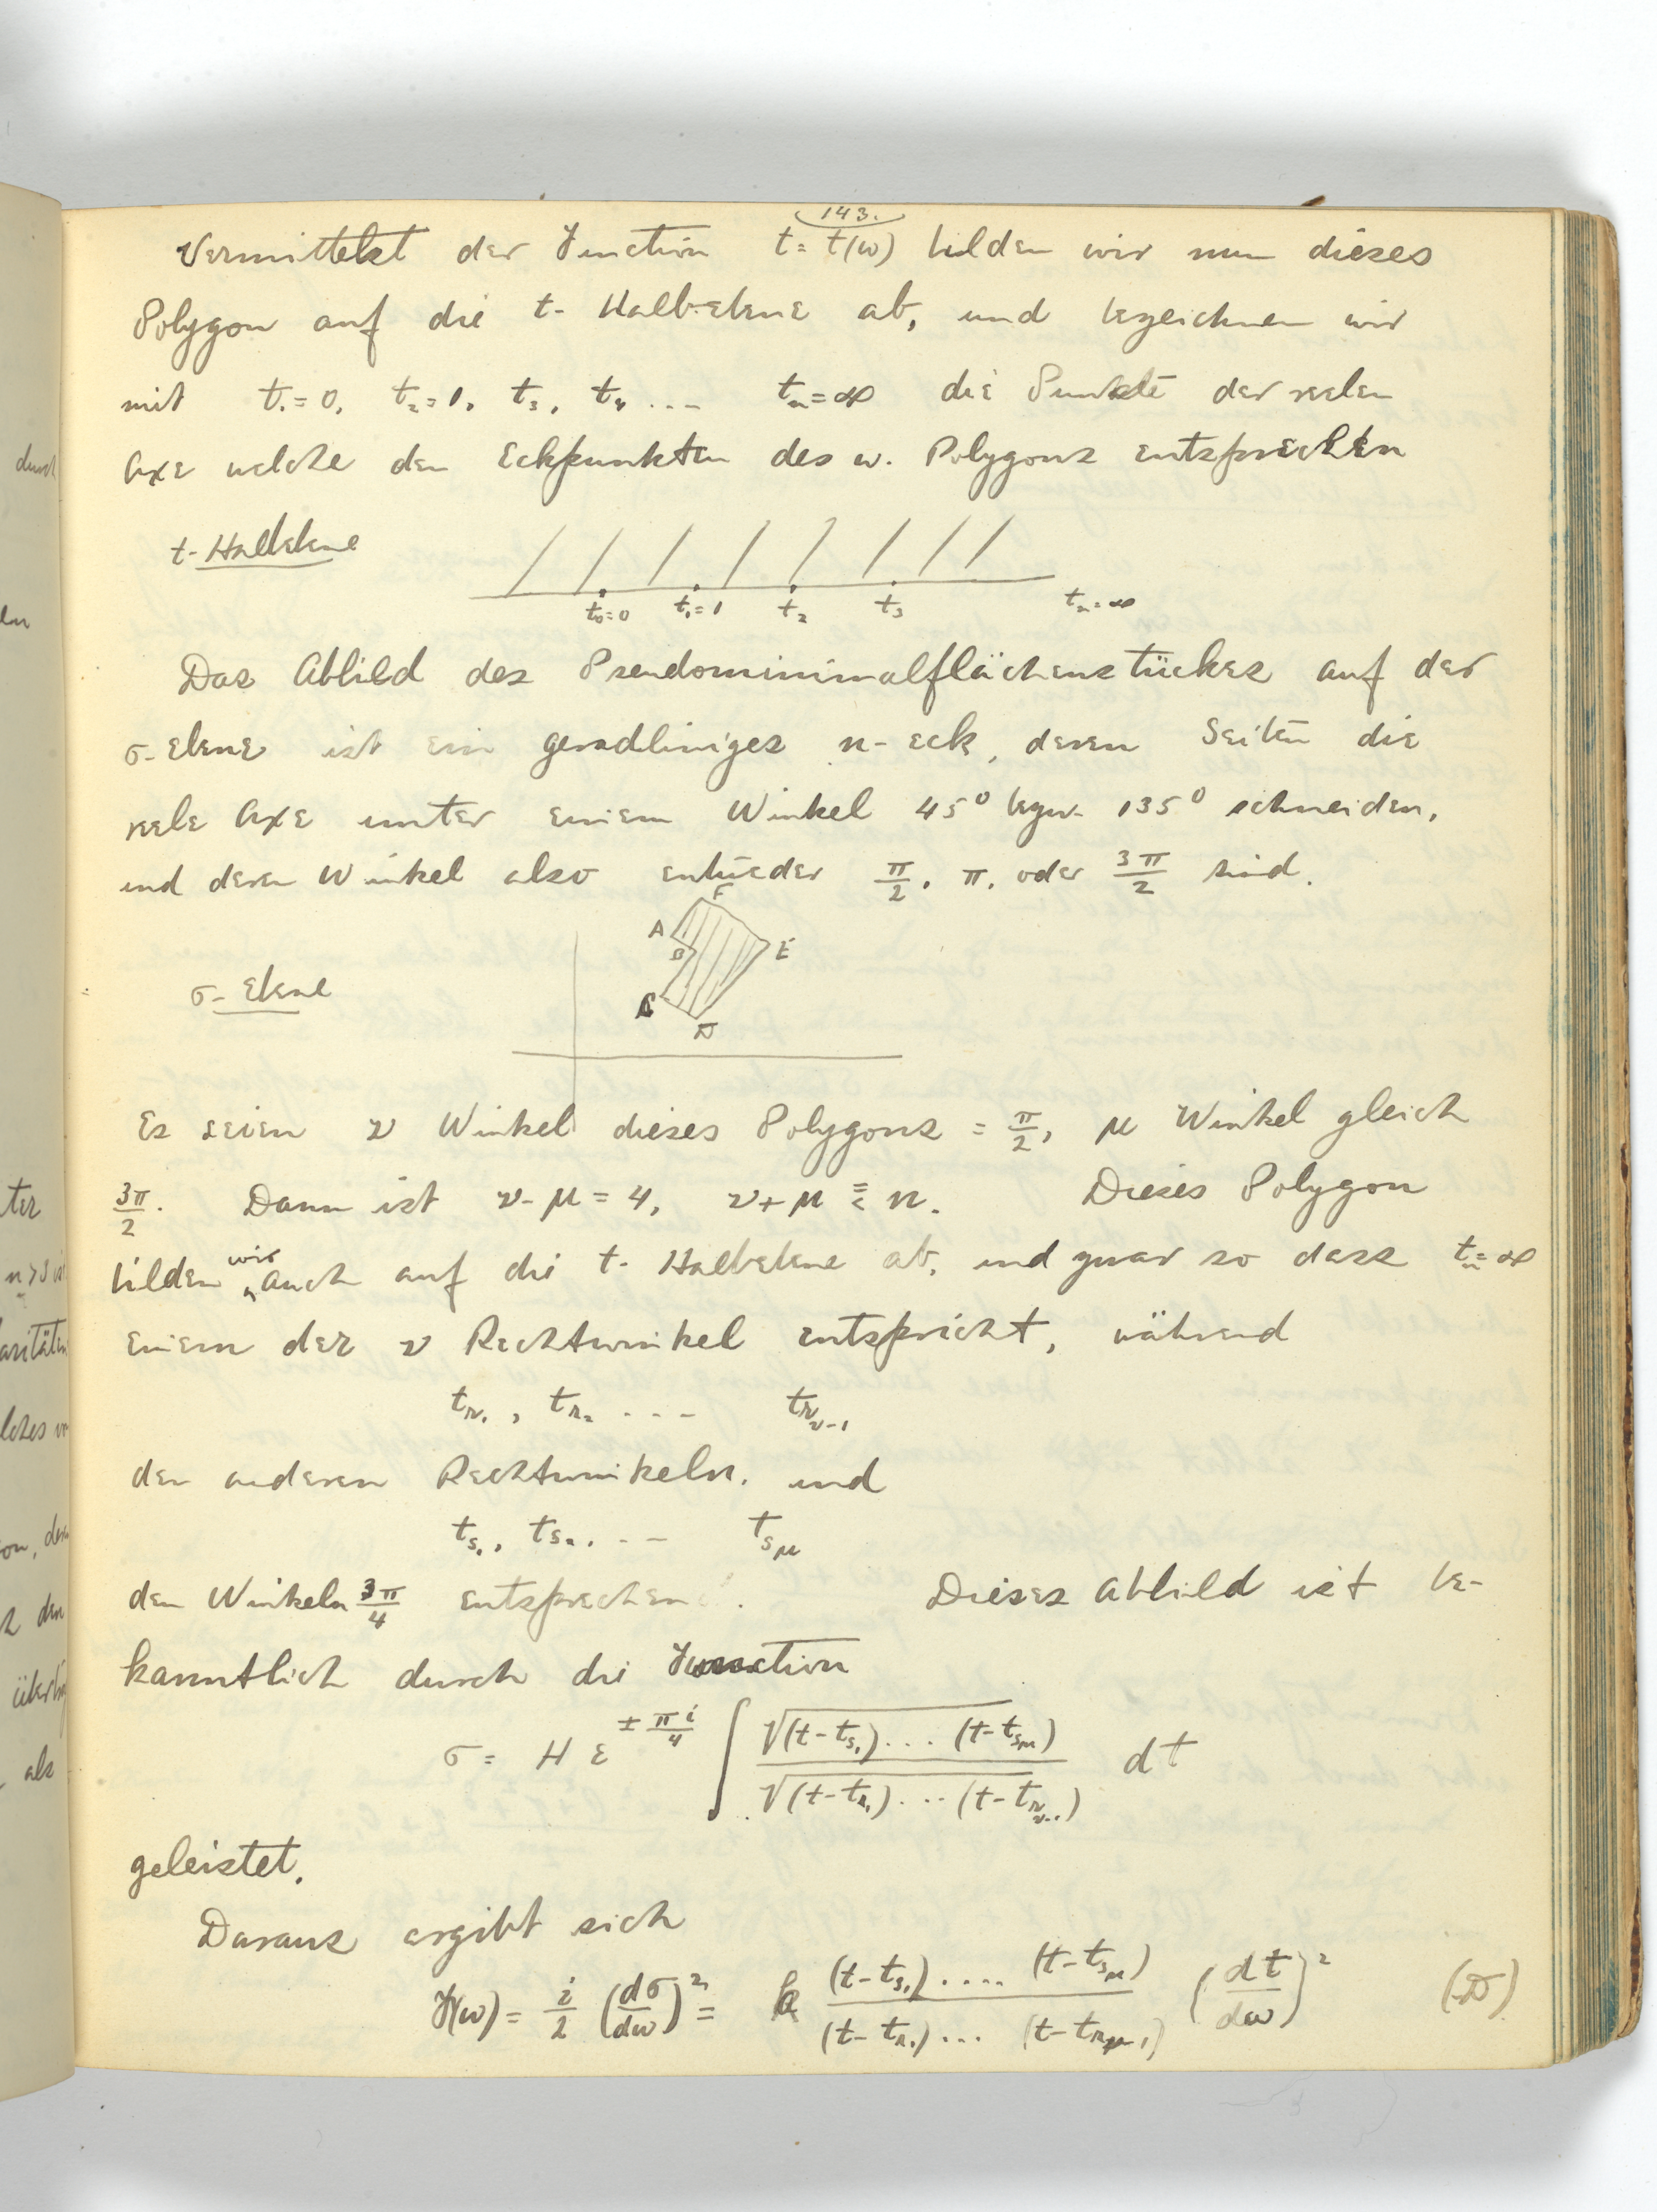 143.
Vermittelst der Function t = t(w) bilden wir nun dieses
Polygon auf die t-Halbebene ab, und bezeichnen wir
mit t₁=0, t₂=1, t₃, t₄ ... tₙ=∞ die Punkte der reelen
Axe welche den Eckpunkten des w. Polygons entsprechen
t-Halbebene
t₀=0 t₁=1 t₂ t₃ tₙ=∞
Das Abbild des Pseudominimalflächenstückes auf der
σ-Ebene ist ein geradliniges n-eck, deren Seiten die
reele Axe unter einem Winkel 45° bezw. 135° schneiden,
und deren Winkel also entweder π/2, π, oder 3π/2 sind.
F
A
B E
σ-Ebene
C
D
Es seien ν Winkel dieses Polygons = π/2, μ Winkel gleich
3π/2. Dann ist ν-μ = 4, ν+μ ≦ n. Dieses Polygon
bilden wir auch auf die t-Halbebene ab, und zwar so dass tₙ=∞
einem der ν Rechtwinkel entspricht, während
t_{r₁}, t_{r₂} ... t_{r_{ν-1}}
den anderen Rechtwinkeln, und
t_{s₁}, t_{s₂}, ... t_{s_μ}
den Winkeln 3π/4 entsprechen. Dieses Abbild ist be-
kanntlich durch die Function
σ = H e^{± πi/4} ∫ √(t-t_{s₁}) ... (t-t_{s_μ}) / √(t-t_{r₁}) ... (t-t_{r_{ν-1}}) dt
geleistet.
Daraus ergibt sich
F(w) = i/2 (dσ/dw)² = k (t-t_{s₁}) .... (t-t_{s_μ}) / (t-t_{r₁}) ... (t-t_{r_{μ-1}}) (dt/dw)² (D)